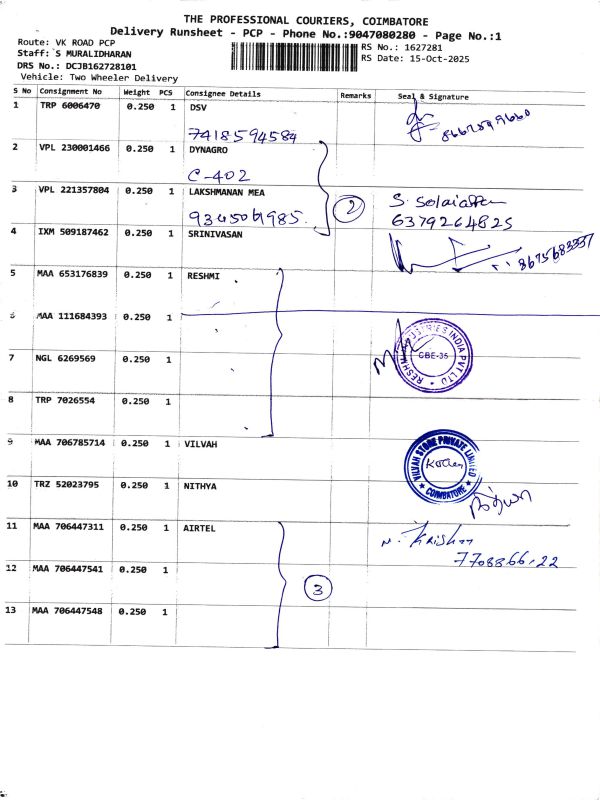 THE PROFESSIONAL COURIERS, COIMBATORE
Delivery Runsheet - PCP - Phone No.:9047080280 - Page No.:1
Route: VK ROAD PCP
Staff: S MURALIDHARAN
RS No.: 1627281
DRS No.: DCJB162728101
RS Date: 15-Oct-2025
Vehicle: Two Wheeler Delivery
S No Consignment No Weight PCS Consignee Details Remarks Seal & Signature
1 TRP 6006470 0.250 1 DSV
7418594584
8667899660
2 VPL 230001466 0.250 1 DYNAGRO
C-402
3 VPL 221357804 0.250 1 LAKSHMANAN MEA
2
6379264825
4 IXM 509187462 0.250 1 SRINIVASAN
8675683337
5 MAA 653176839 0.250 1 RESHMI
6 MAA 111684393 0.250 1
RESHMI INDUSTRIES INDIA PVT LTD
CBE-35
7 NGL 6269569 0.250 1
8 TRP 7026554 0.250 1
9 MAA 706785714 0.250 1 VILVAH
VILVAH STORE PRIVATE LIMITED
COIMBATORE
10 TRZ 52023795 0.250 1 NITHYA
நித்யா
11 MAA 706447311 0.250 1 AIRTEL
N. Krishna
12 MAA 706447541 0.250 1
3
13 MAA 706447548 0.250 1